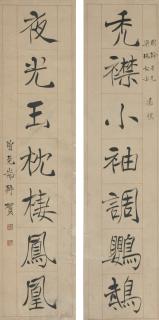 禿襟小袖調鸚鵡
夜光玉枕棲鳳凰
曾克耑拜賀